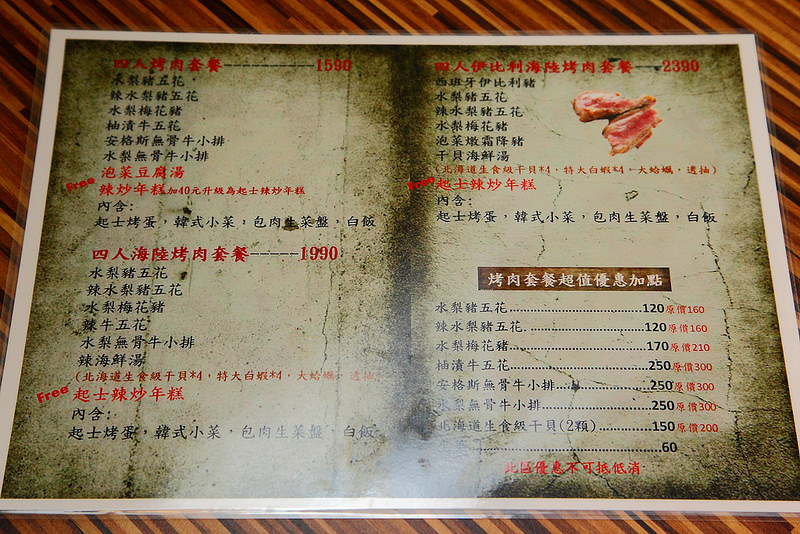 四人烤肉套餐-----------1590
水梨豬五花
辣水梨豬五花
水梨梅花豬
柚漬牛五花
安格斯無骨牛小排
水梨無骨牛小排
泡菜豆腐湯
Free 辣炒年糕加40元升級為起士辣炒年糕
內含:
起士烤蛋，韓式小菜，包肉生菜盤，白飯
四人海陸烤肉套餐-----1990
水梨豬五花
辣水梨豬五花
水梨梅花豬
辣牛五花
水梨無骨牛小排
辣海鮮湯
(北海道生食級干貝*4，特大白蝦*4，大蛤蠣，透抽)
Free 起士辣炒年糕
內含:
起士烤蛋，韓式小菜，包肉生菜盤，白飯
四人伊比利海陸烤肉套餐---2390
西班牙伊比利豬
水梨豬五花
辣水梨豬五花
水梨梅花豬
泡菜燉霜降豬
干貝海鮮湯
(北海道生食級干貝*4，特大白蝦*4，大蛤蠣，透抽)
Free 起士辣炒年糕
內含:
起士烤蛋，韓式小菜，包肉生菜盤，白飯
烤肉套餐超值優惠加點
水梨豬五花..............................120原價160
辣水梨豬五花. .........................120原價160
水梨梅花豬..............................170原價210
柚漬牛五花..............................250原價300
安格斯無骨牛小排.....................250原價300
水梨無骨牛小排........................250原價300
北海道生食級干貝(2顆)..............150原價200
60
此區優惠不可抵低消